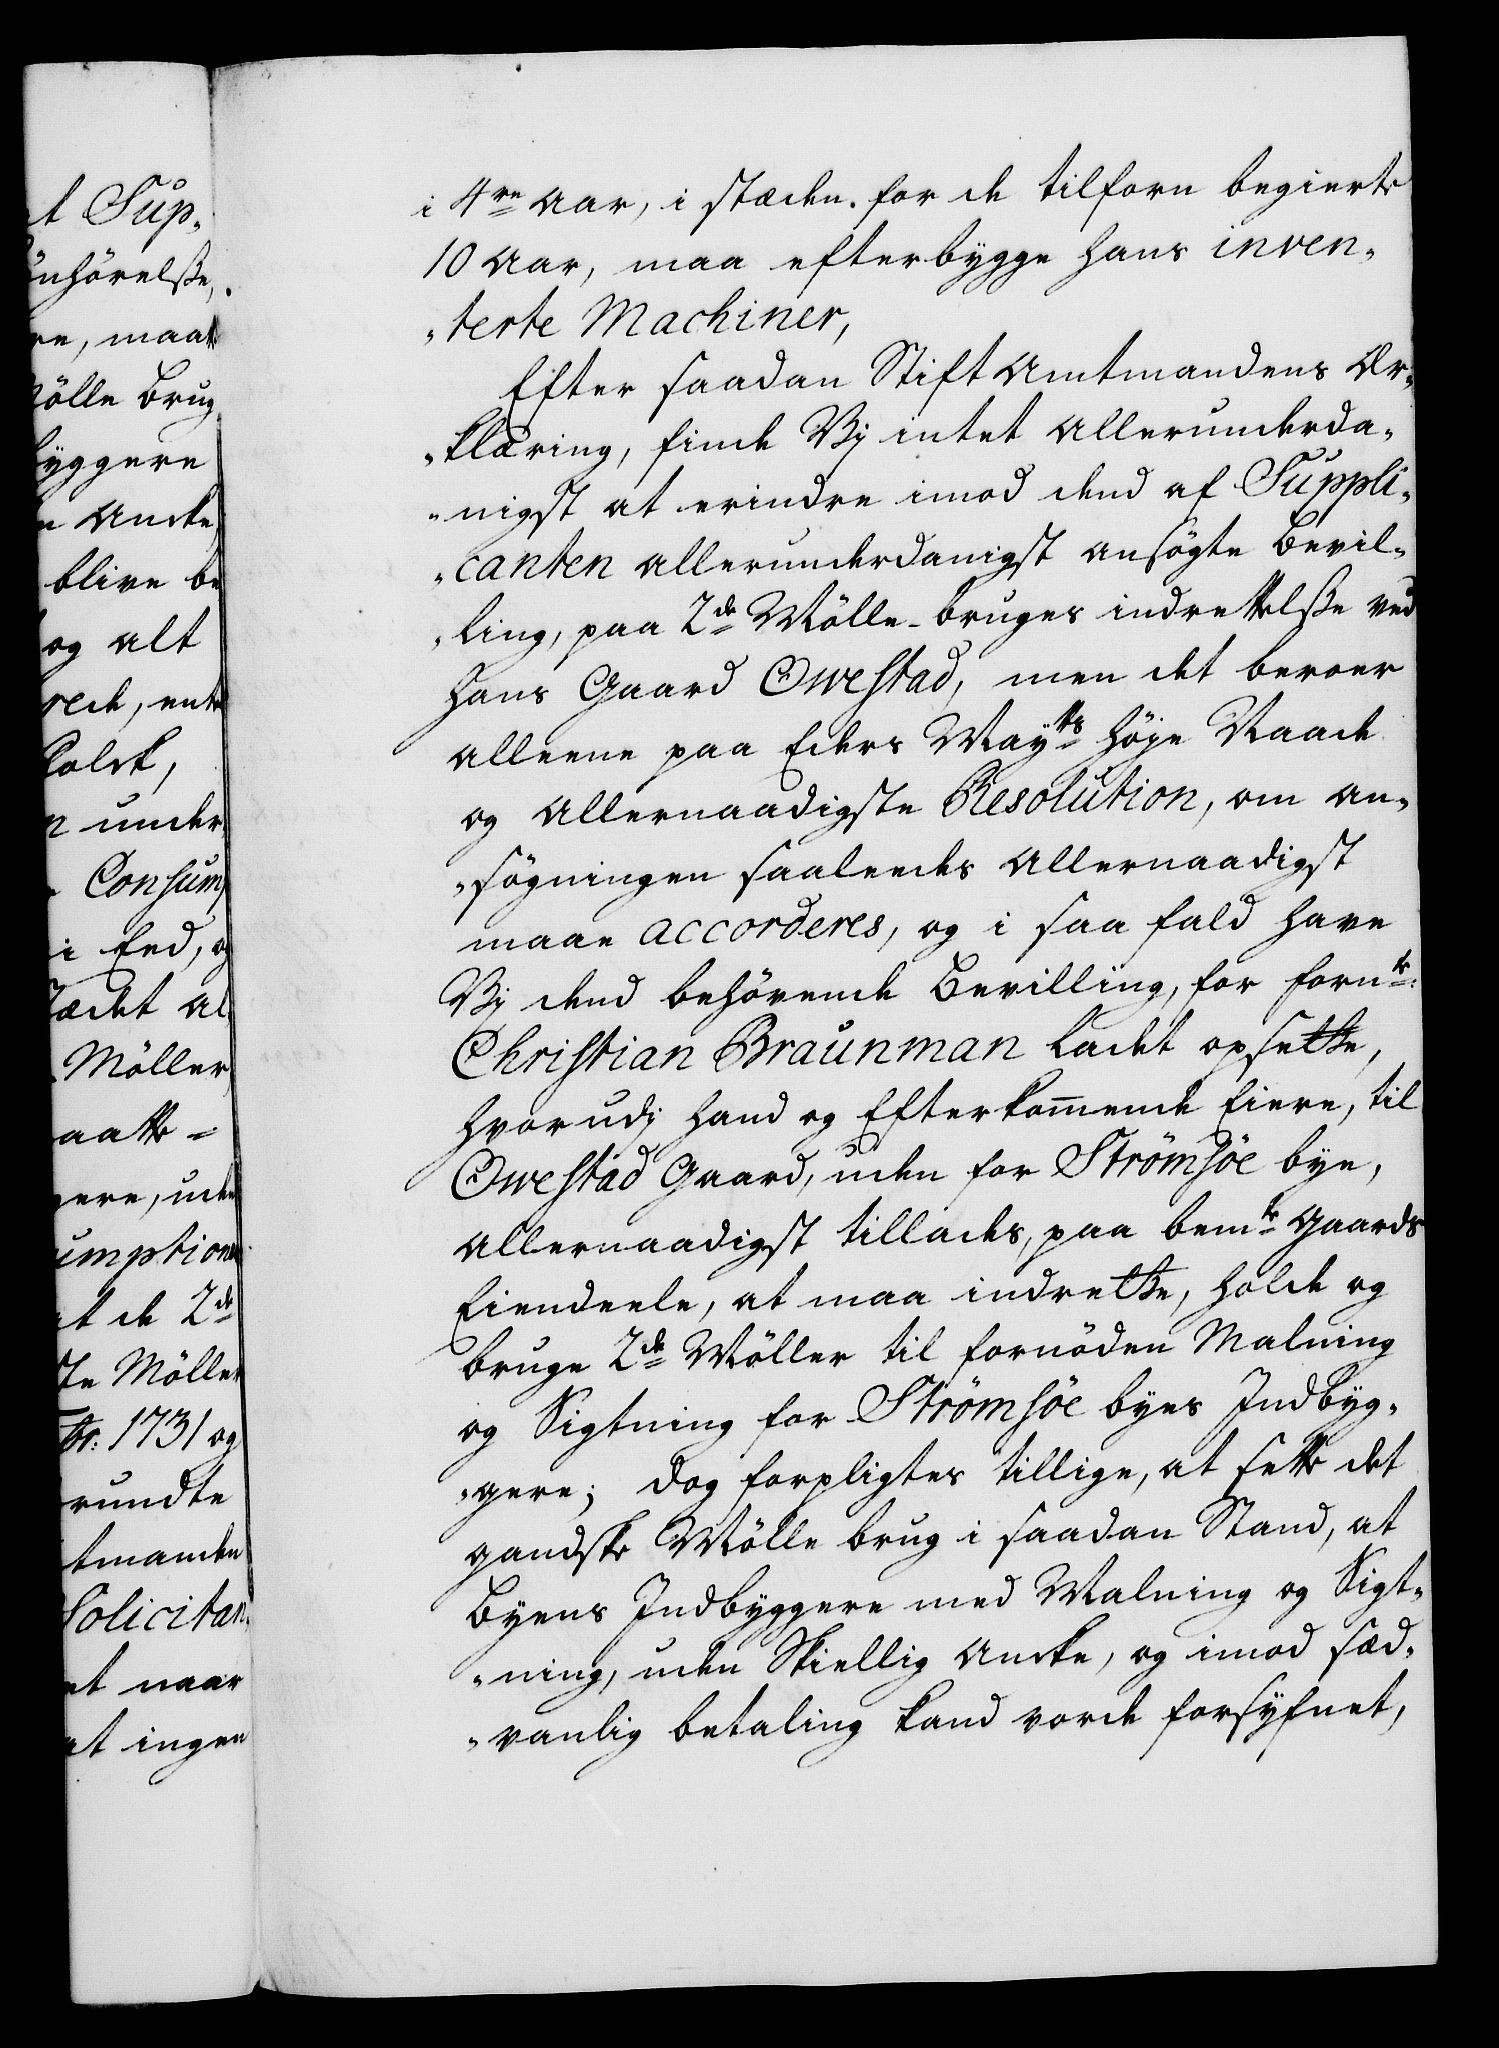 t Sup-
önhörelsse,
re, maatte
ölle Brug
byggere
n Ancke
blive be
og alt
rede, ent
Folck,
n under
Consum
i Eed, og
ædet al
Möller
aatte =
gere, uden
umptionen
at de 2de
te Möller
br: 1731 og
rundte
tmanden
Solicitan
et naar
at ingen
i 4re Aar, i stæden for de tilforn begierte
10 Aar, maa efterbygge hans inven-
-terte Machiner,
Efter saadan Stift Amtmandens Er-
-klæring, finde Vj intet allerunderda-
-nigst at erindre imod dend af Suppli-
-canten allerunderdanigst ansögte Bevil-
-ling, paa 2de Mölle-bruges indrettelsse ved
hans Gaard Owestad, men det beroer
alleene paa Eders Mayts höje Naade
og allernaadigste Resolution, om an-
-sögningen saaleedes allernaadigst
maae accorderes, og i saa fald have
Vj dend behövende Bevilling, for fornte
Christian Braunman ladet opsette,
hvorudj hand og Efterkommende Eiere, til
Owestad Gaard, uden for Strömsöe bye,
allernaadigst tillades, paa bemte Gaards
Eiendeele, at maa indrette, holde og
bruge 2de Möller til fornöden Malning
og Sigtning for Strömsöe byes Indbyg-
-gere; dog forpligtes tillige, at sette det
gandske Mölle brug i saadan Stand, at
Byens Indbyggere med Malning og Sigt-
-ning, uden Skiellig Ancke, og imod sæd-
-vanlig betaling kand vorde forsyfnet,